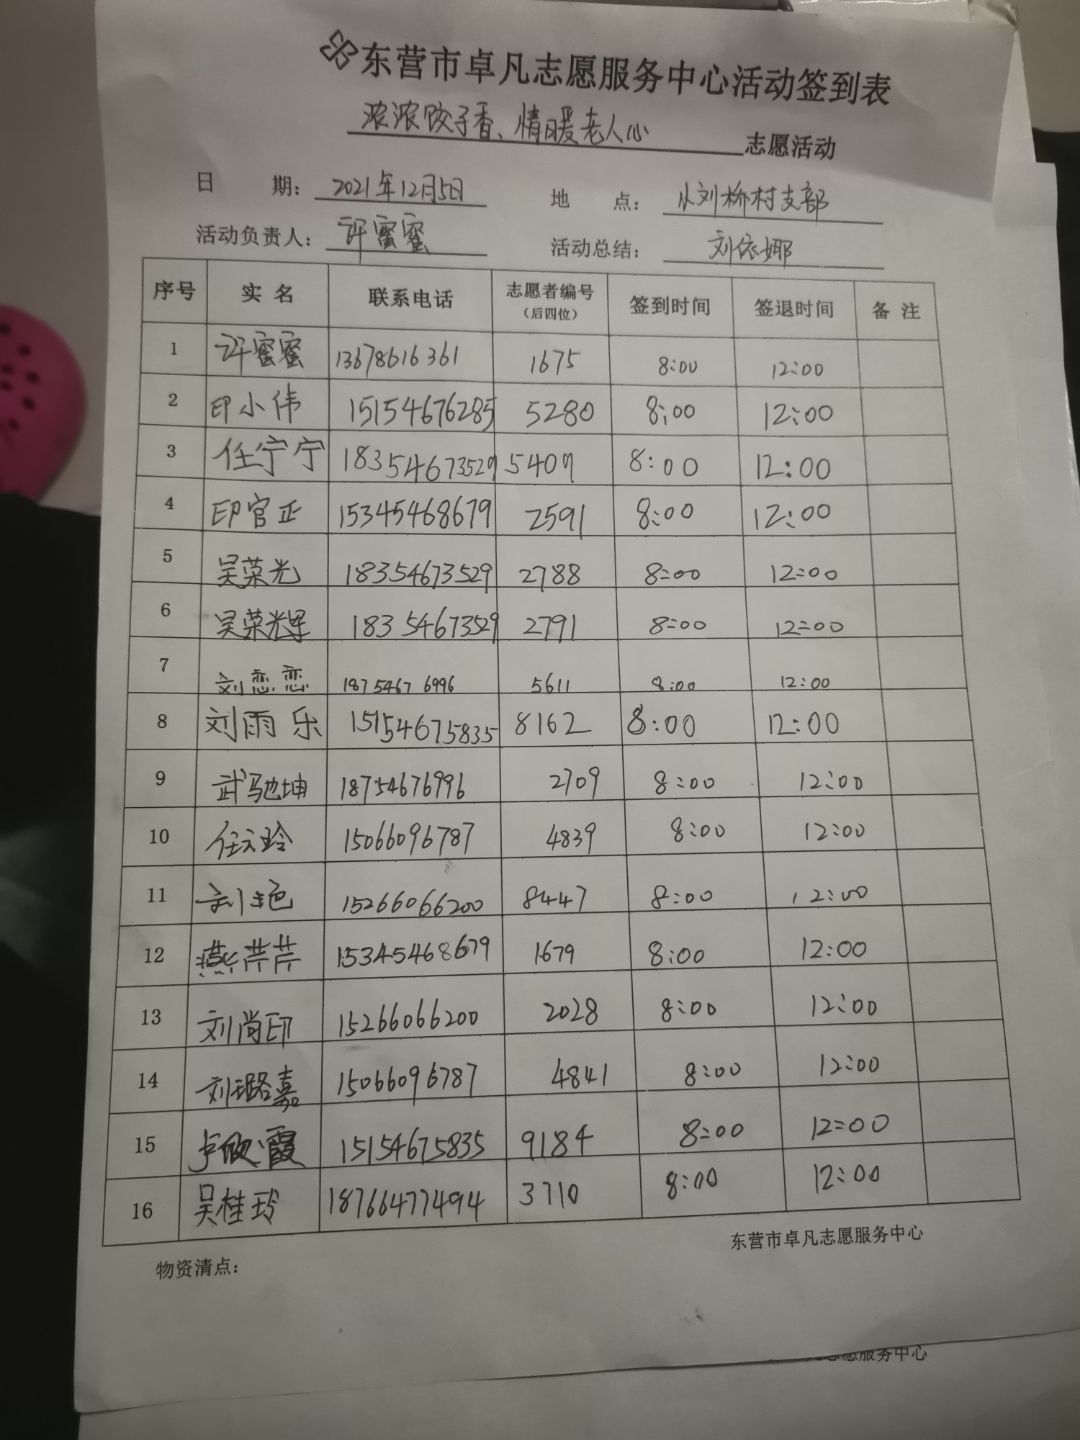 东营市卓凡志愿服务中心活动签到表
浓浓饺子香、情暖老人心 志愿活动
日 期: 2021年12月5日 地 点: 小刘桥村支部
活动负责人: 许蜜蜜 活动总结: 刘依娜
序号 实名 联系电话 志愿者编号 签到时间 签退时间 备注
(后四位)
1 许蜜蜜 13678616361 1675 8:00 12:00
2 印小伟 15154676285 5280 8:00 12:00
3 任宁宁 18354673529 5407 8:00 12:00
4 印官正 15345468679 2591 8:00 12:00
5 吴荣光 18354673529 2788 8:00 12:00
6 吴荣辉 18354673529 2791 8:00 12:00
7 刘恋恋 18754676996 5611 8:00 12:00
8 刘雨乐 15154675835 8162 8:00 12:00
9 武驰坤 18754676996 2709 8:00 12:00
10 任云玲 15066096787 4839 8:00 12:00
11 15266066200 8447 8:00 12:00
12 燕芹芹 15345468679 1679 8:00 12:00
13 刘尚印 15266066200 2028 8:00 12:00
14 刘璐嘉 15066096787 4841 8:00 12:00
15 卢欣霞 15154675835 9184 8:00 12:00
16 吴桂玲 18766477494 3710 8:00 12:00
东营市卓凡志愿服务中心
物资清点:
志愿服务中心